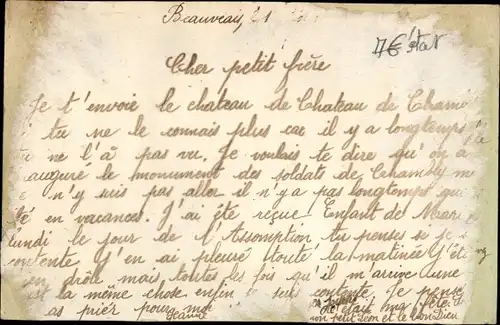 Beauvais, 21
7€ état
Cher petit frère
Je t'envoie le chateau de Chateau de Cham
tu ne le connais plus car il y a longtemps
tu ne l'à pas vu. Je voulais te dire qu'on a
auguré le monument des soldats de Chambly m
je n'y suis pas aller il n'y a pas longtemps que
été en vacances. J'ai été reçue Enfant de Mari
lundi le jour de l'Assomption tu penses si je s
contente j'en ai pleuré toute la matinée J'éti
drôle mais toutes les fois qu'il m'arrive une
est la même chose enfin seul contente. Je pense
as prier pour moi
c'était ma fête
mon petit Léon et le bon Dieu
Jeanne